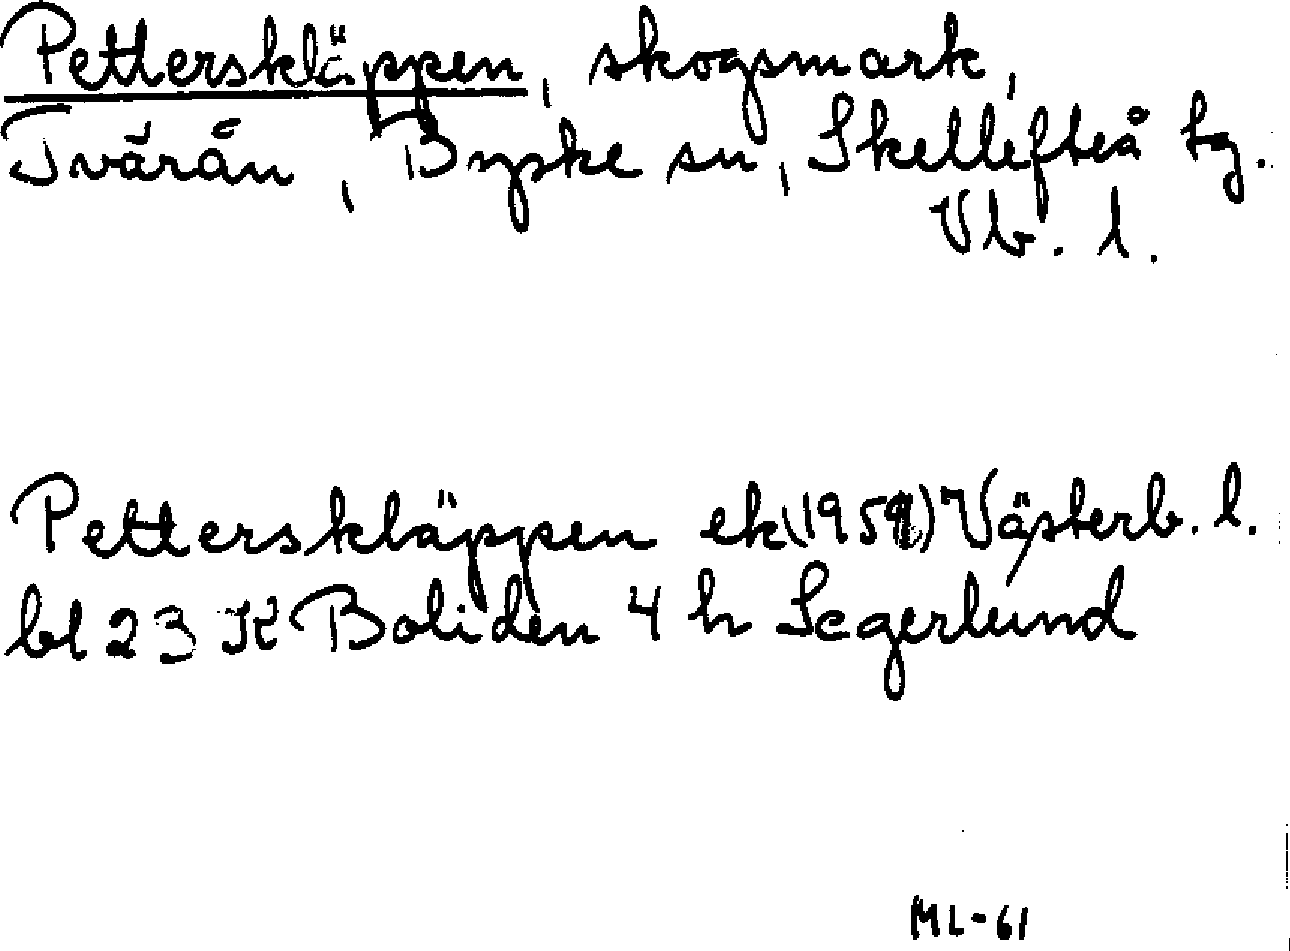 Petterskläppen, skogsmark,
Tvärån, Byske sn, Skellefteå tg.
Vb. l.
Petterskläppen ek (1959) Västerb. l.
bl 23 K Boliden 4 h Segerlund
ML-61